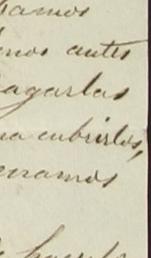 bamos
enos antes
pagarlas
na cubrirlos,
enamos